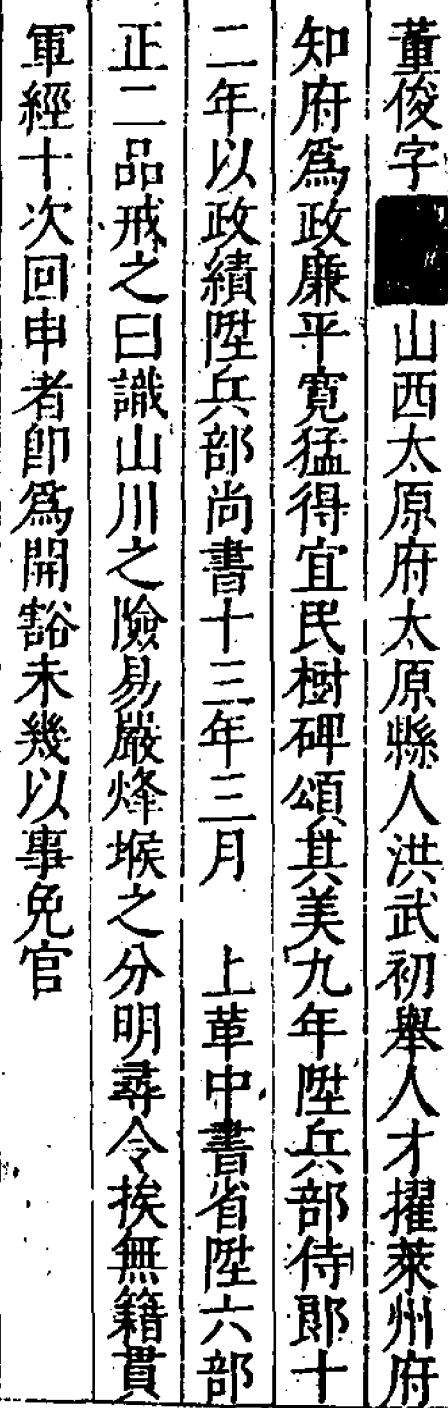 董俊字山西太原府太原縣人洪武初舉人才擢萊州府
知府爲政廉平寛猛得宜民樹碑頌其美九年陞兵部侍郎十
二年以政績陞兵部尚書十三年三月　上革中書省陞六部
正二品戒之曰識山川之險易嚴烽堠之分明尋令挨無籍貫
軍經十次回申者卽爲開豁未幾以事免官